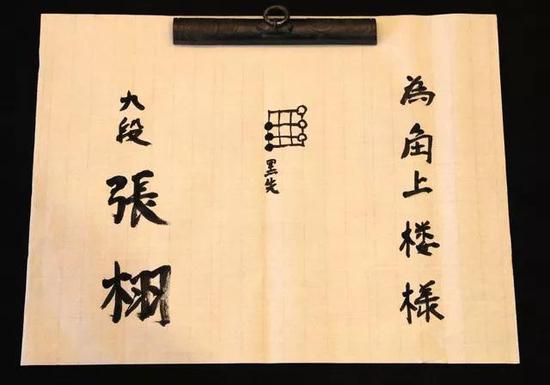 為角上楼様
黒先
九段
張栩